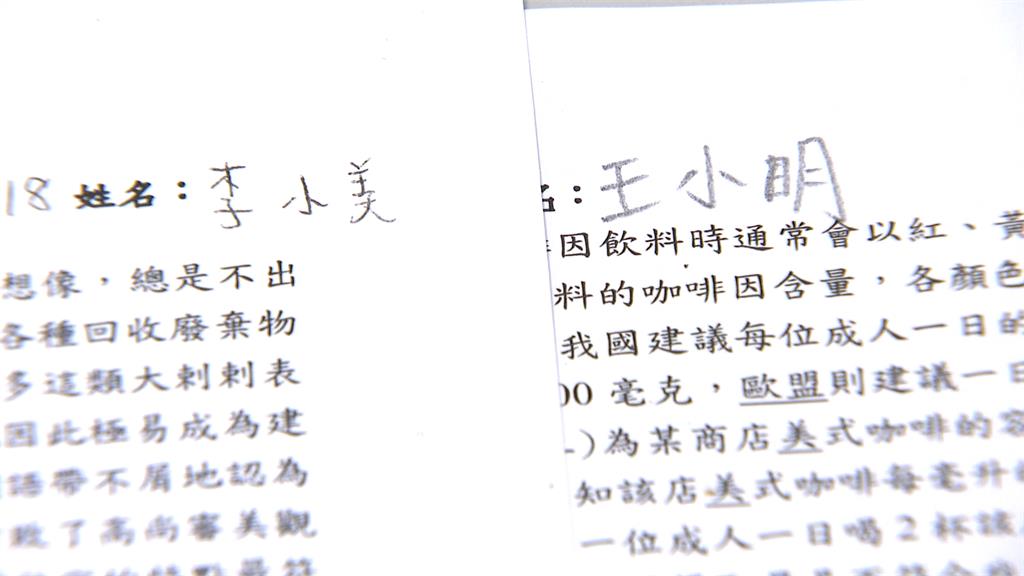 18 姓名：李小美
想像，總是不出
各種回收廢棄物
多這類大剌剌表
因此極易成為建
語帶不屑地認為
敗了高尚審美觀
名：王小明
因飲料時通常會以紅、黃
料的咖啡因含量，各顏色
我國建議每位成人一日的
00 毫克，歐盟則建議一日
)為某商店美式咖啡的容
知該店美式咖啡每毫升的
一位成人一日喝2杯該